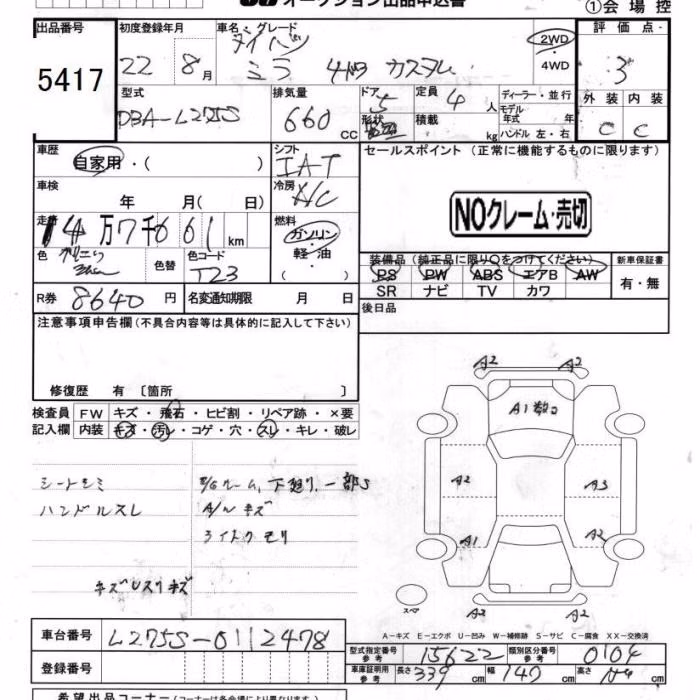 オークション出品申込書
①会場控
出品番号 初度登録年月 車名・グレード 評価点
5417 22年 8月 ダイハツ ミラ 4ドア カスタム 2WD ・ 4WD 3
型式 排気量 ドア 定員 ディーラー・並行 外装 内装
DBA-L275S 660cc 5 4人 モデル年式 年式 C C
形状 積載 kg ハンドル 左・右
車歴 シフト セールスポイント (正常に機能するものに限ります)
自家用・( ) IAT
車検 冷房
年 月( 日) A/C
NOクレーム・売切
走行 燃料
14万7千661km ガソリン・軽油・( )
色 色替 色コード 装備品(純正品に限り○をつけてください) 新車保証書
T23 PS PW ABS エアB AW 有・無
SR ナビ TV カワ
R券 8640円 名変通知期限 月 日 後日品
注意事項申告欄(不具合内容等は具体的に記入して下さい)
修復歴 有 〔箇所 〕
検査員 FW キズ・飛石・ヒビ割・リペア跡・×要
記入欄 内装 キズ・汚レ・コゲ・穴・スレ・キレ・破レ
A2 A2
A1
シートシミ 下廻リ、一部S A2 A3
ハンドルスレ A/W キズ
ライトクモリ A1 A2
キズ スリキズ
スペア
A2 A2
A−キズ E−エクボ U−凹み W−補修跡 S−サビ C−腐食 XX−交換済
車台番号 L275S-0112478
型式指定番号 参考 15622 類別区分番号 参考 0104
登録番号 車庫証明用 参考 長さ 339 cm 幅 147 cm 高さ cm
希望出品コーナー(コーナーは各会場により異なります)